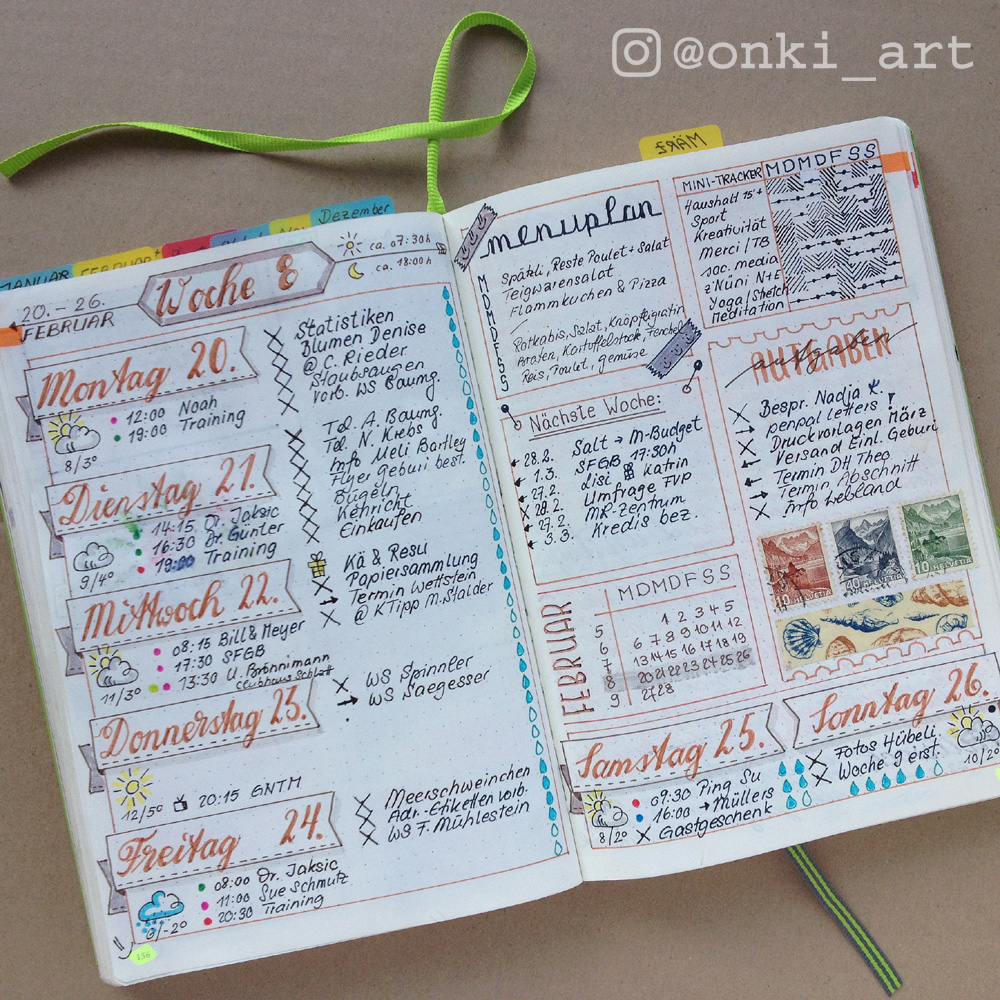 @onki_art
MÄRZ
Dezember
JANUAR
FEBRUAR
20. - 26.
FEBRUAR
Woche 8
ca. 07:30h
ca. 18:00h
Montag 20.
12:00 Noah
19:00 Training
8/3°
Statistiken
Blumen Denise
@ C. Rieder
Staubsaugen
Vorb. WS Baumg.
Dienstag 21.
14:15 Dr. Jaksic
16:30 Dr. Gunter
19:00 Training
9/4°
Tel. A. Baumg.
Tel. N. Krebs
Info Meli Bartley
Flyer Geburi best.
Bügeln
Kehricht
Einkaufen
Mittwoch 22.
08:15 Bill & Meyer
17:30 SFGB
13:30 U. Brönnimann
11/3°
Kä & Resu
Papiersammlung
Termin Wettstein
@ KTipp M. Stalder
Donnerstag 23.
12/5° 20:15 GNTM
WS Spinnler
WS Saegesser
Freitag 24.
08:00 Dr. Jaksic
11:00 Sue Schmutz
20:30 Training
Meerschweinchen
Adr.-Etiketten vorb.
WS F. Mühlestein
156
menuplan
M D M D F S S
Spätzli, Reste Poulet + Salat
Teigwarensalat
Flammkuchen & Pizza
Rotkabis, Salat, Knöpfligratin
Braten, Kartoffelstock, Fenchel
Reis, Poulet, gemüse
MINI-TRACKER M D M D F S S
Haushalt 15'+
Sport
Kreativität
Merci / TB
soc. media
z'Nüni N+E
Yoga / Stretch
Meditation
Nächste Woche:
28.2. Salt → M-Budget
1.3. SFGB 17:30h
27.2. Lisi & Katrin
28.2. Umfrage FVP
27.2. MR-Zentrum
3.3. Kredis bez.
AUFGABEN
aufgaben
Bespr. Nadja K.
penpal letters !
Druckvorlagen März
Versand Einl. Geburi
Termin DH Theo
Termin Abschnitt
FEBRUAR
M D M D F S S
5 1 2 3 4 5
6 6 7 8 9 10 11 12
7 13 14 15 16 17 18 19
8 20 21 22 23 24 25 26
9 27 28
10 HELVETIA
40 HELVETIA
10 HELVETIA
Samstag 25.
09:30 Ping Su
16:00 → Müllers
Gastgeschenk
8/2°
Sonntag 26.
Fotos Hübeli
Woche 9 erst.
10/2°